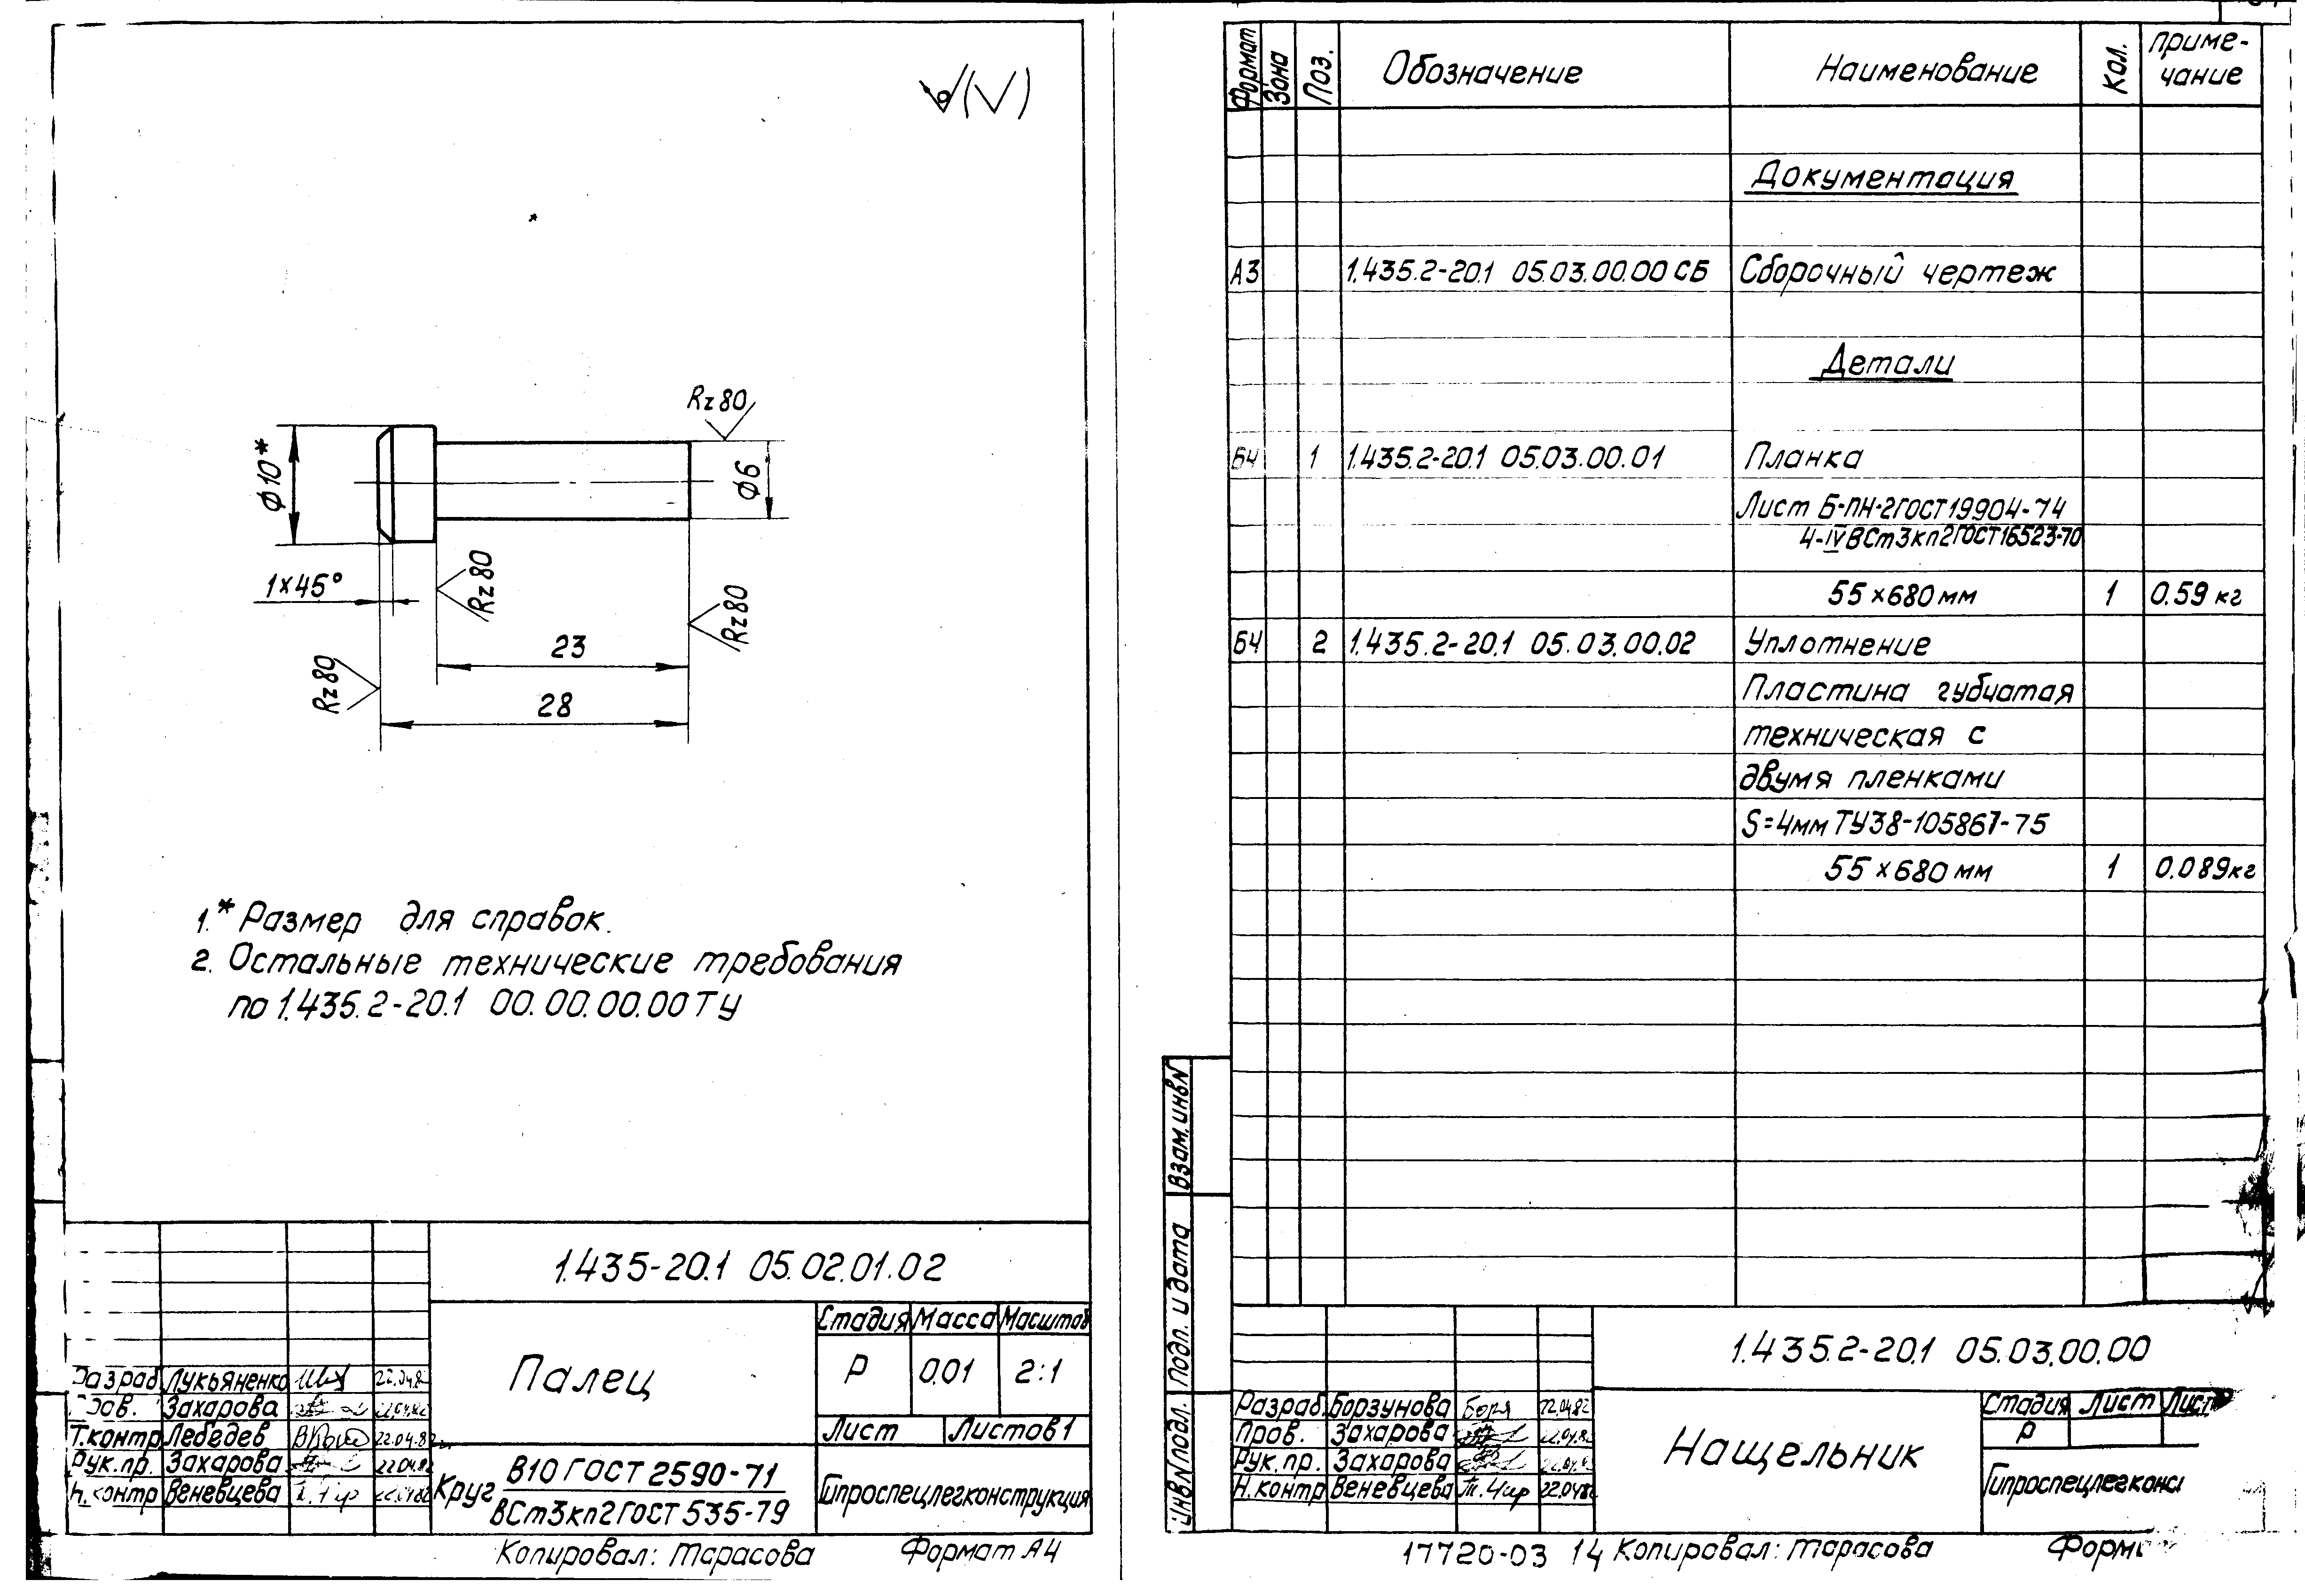 √(√)
Rz80
⌀10*
⌀6
1×45°
Rz80
Rz80
Rz80
23
28
1.* Размер для справок.
2. Остальные технические требования
по 1.435.2-20.1 00.00.00.00ТУ
1.435-20.1 05.02.01.02
Палец
Стадия Масса Масштаб
Р 0,01 2:1
Лист Листов 1
Разраб. Лукьяненко 22.04.82
Пров. Захарова 22.04.82
Т.контр Лебедев 22.04.82
Рук.пр. Захарова 22.04.82
Н.контр Веневцева 22.04.82
Круг В10 ГОСТ 2590-71
ВСт3кп2 ГОСТ 535-79
Гипроспецлегконструкция
Копировал: Тарасова Формат А4
Формат Зона Поз. Обозначение Наименование Кол. Приме-
чание
Документация
А3 1.435.2-20.1 05.03.00.00 СБ Сборочный чертеж
Детали
БЧ 1 1.435.2-20.1 05.03.00.01 Планка
Лист Б-ПН-2 ГОСТ 19904-74
4-IV ВСт3кп2 ГОСТ 16523-70
55×680 мм 1 0.59 кг
БЧ 2 1.435.2-20.1 05.03.00.02 Уплотнение
Пластина губчатая
техническая с
двумя пленками
S=4мм ТУ38-105867-75
55×680 мм 1 0.089кг
Взам.инв№
Подп. и дата
Инв№подл.
1.435.2-20.1 05.03.00.00
Разраб. Борзунова Борз 22.04.82
Пров. Захарова 22.04.82
Рук.пр. Захарова 22.04.82
Н.контр Веневцева 22.04.82
Нащельник
Стадия Лист Лист
Р
Гипроспецлегконс
17720-03 14 Копировал: Тарасова Форм